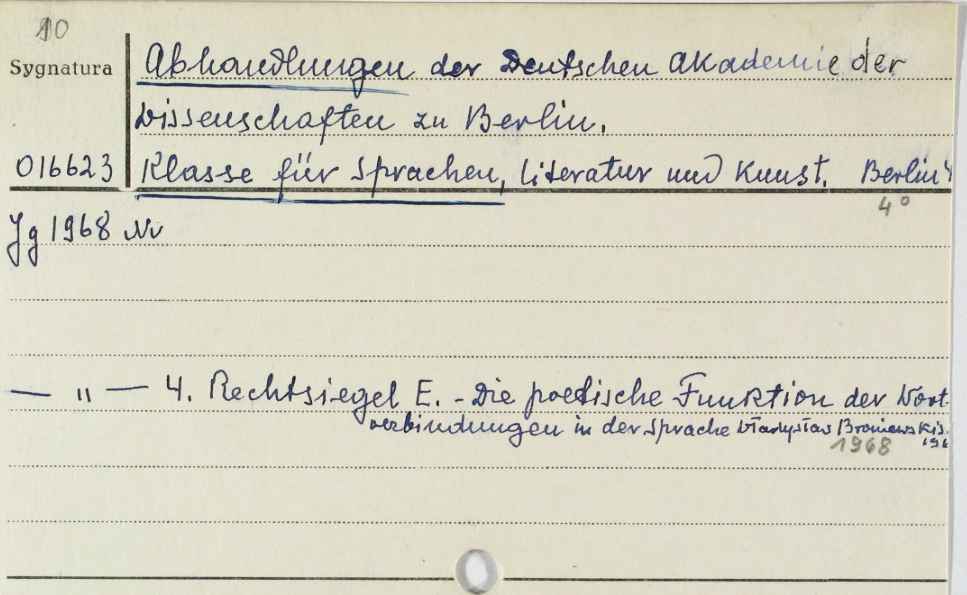 10
Sygnatura
Abhandlungen der Deutschen Akademie der
Wissenschaften zu Berlin.
016623 Klasse für Sprachen, Literatur und Kunst. Berlin
4°
Jg 1968 Nr
— " — 4. Rechtsiegel E. - Die poetische Funktion der Wort
verbindungen in der Sprache Władysław Broniewskis.
1968